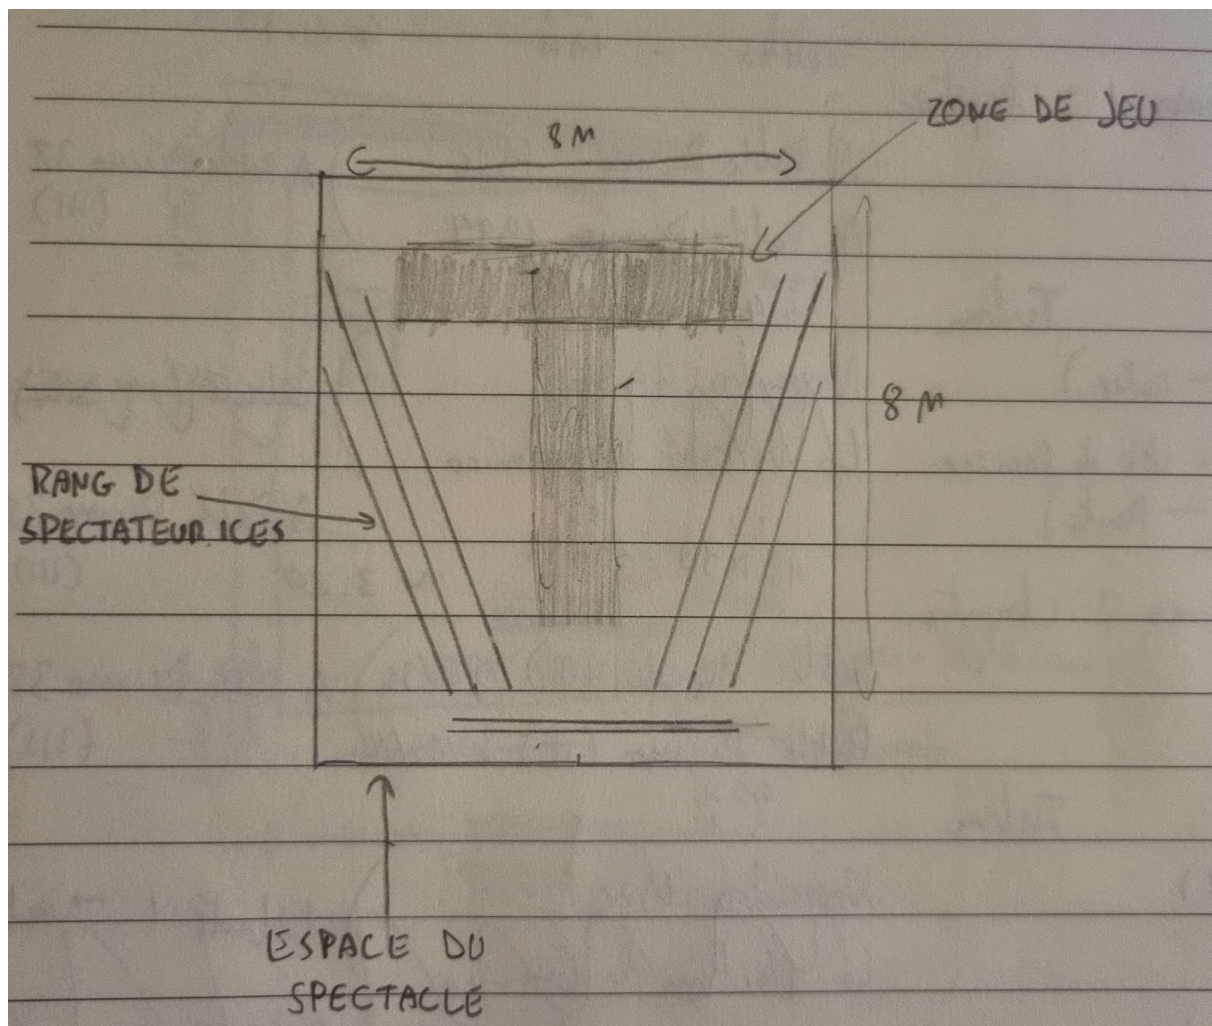 8 M
ZONE DE JEU
8 M
RANG DE
SPECTATEUR.ICES
ESPACE DU
SPECTACLE